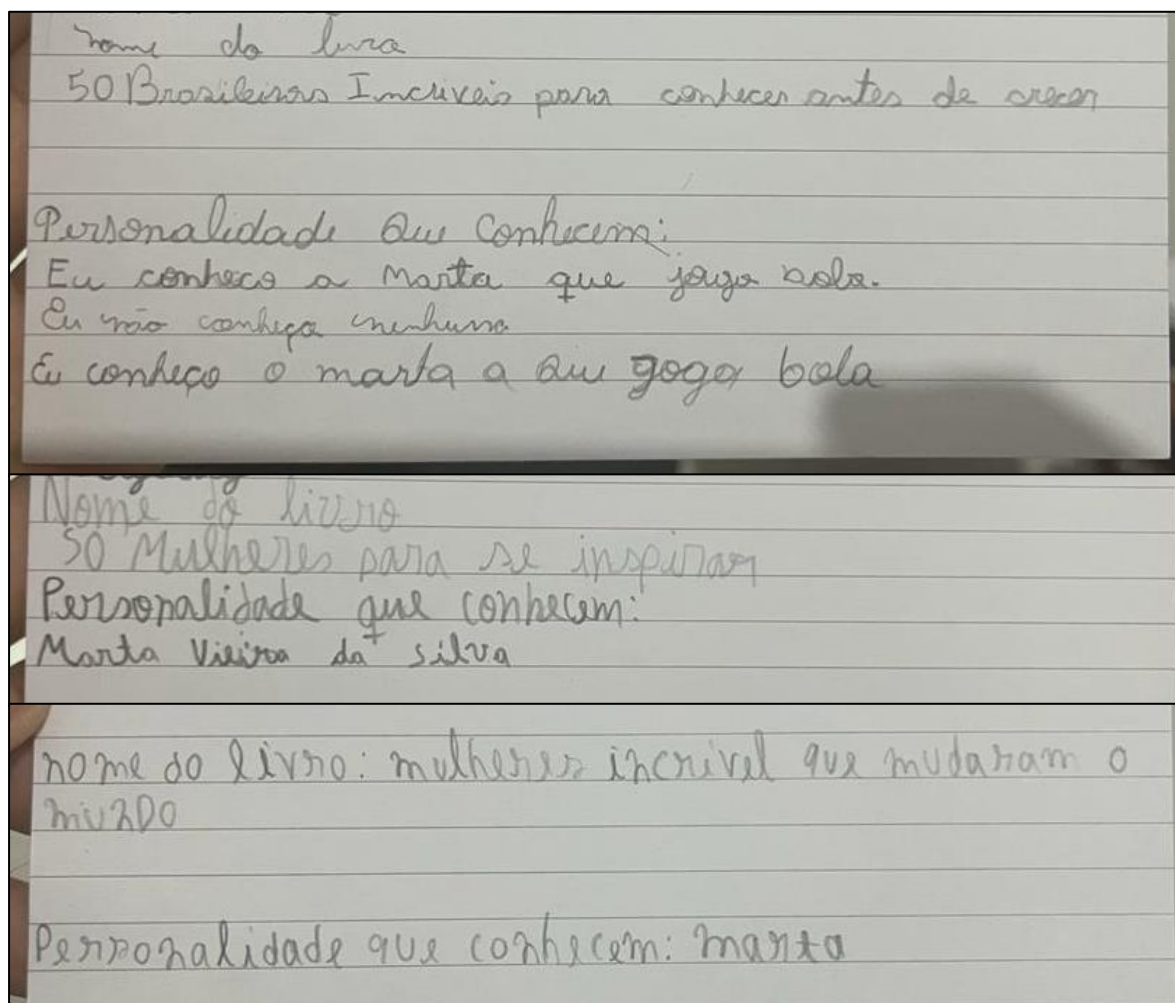 nome do livro
50 Brasileiras Incriveis para conhecer antes de crecer
Personalidade Que Conhecem:
Eu conheco a Marta que joga bola.
Eu não conheço nenhuma
Eu conheço o marta a Que goga bola
Nome do livro
50 Mulheres para se inspirar
Personalidade que conhecem:
Marta Vieira da silva
nome do livro: mulheres incrivel que mudaram o
muNDO
Personalidade que conhecem: marta